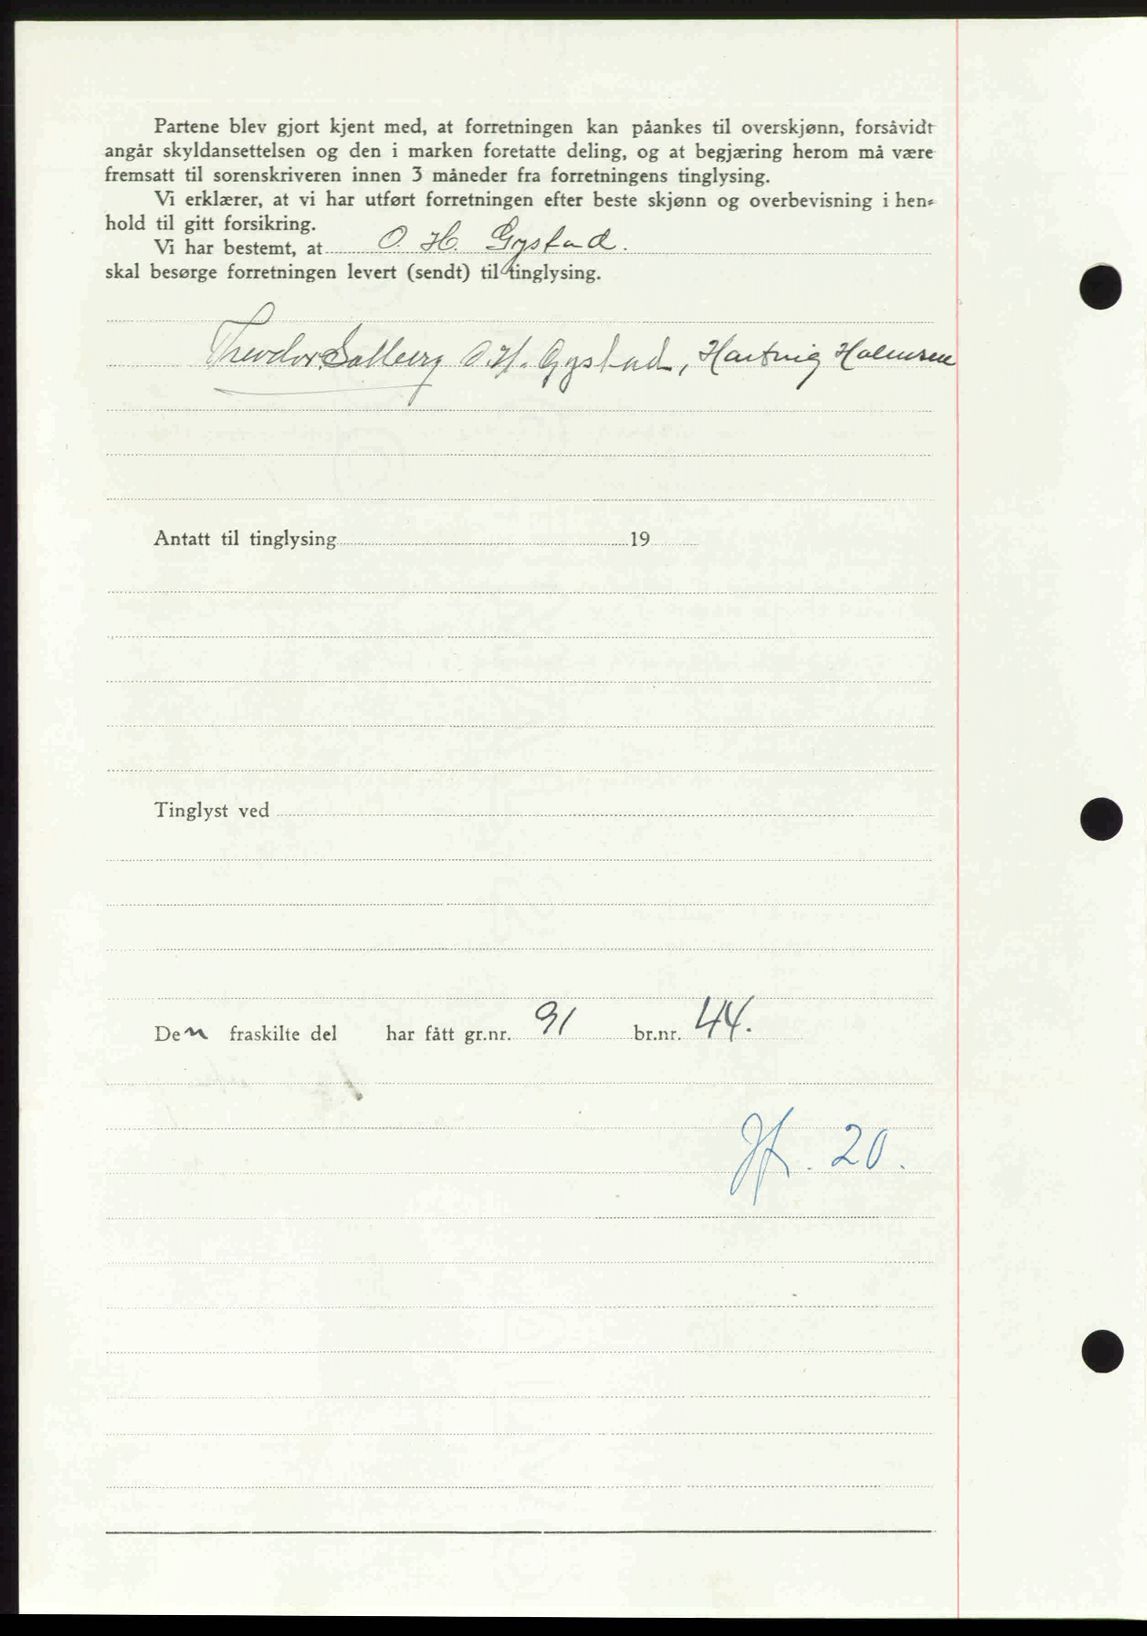 Partene blev gjort kjent med, at forretningen kan påankes til overskjønn, forsåvidt
angår skyldansettelsen og den i marken foretatte deling, og at begjæring herom må være
fremsatt til sorenskriveren innen 3 måneder fra forretningens tinglysing.
Vi erklærer, at vi har utført forretningen efter beste skjønn og overbevisning i hen-
hold til gitt forsikring.
Vi har bestemt, at O. H. Gystad.
skal besørge forretningen levert (sendt) til tinglysing.
Theodor Solberg O. H. Gystad, Hartvig Holmsen
Antatt til tinglysing 19
Tinglyst ved
Den fraskilte del har fått gr.nr. 91 br.nr. 44.
Jf. 20.